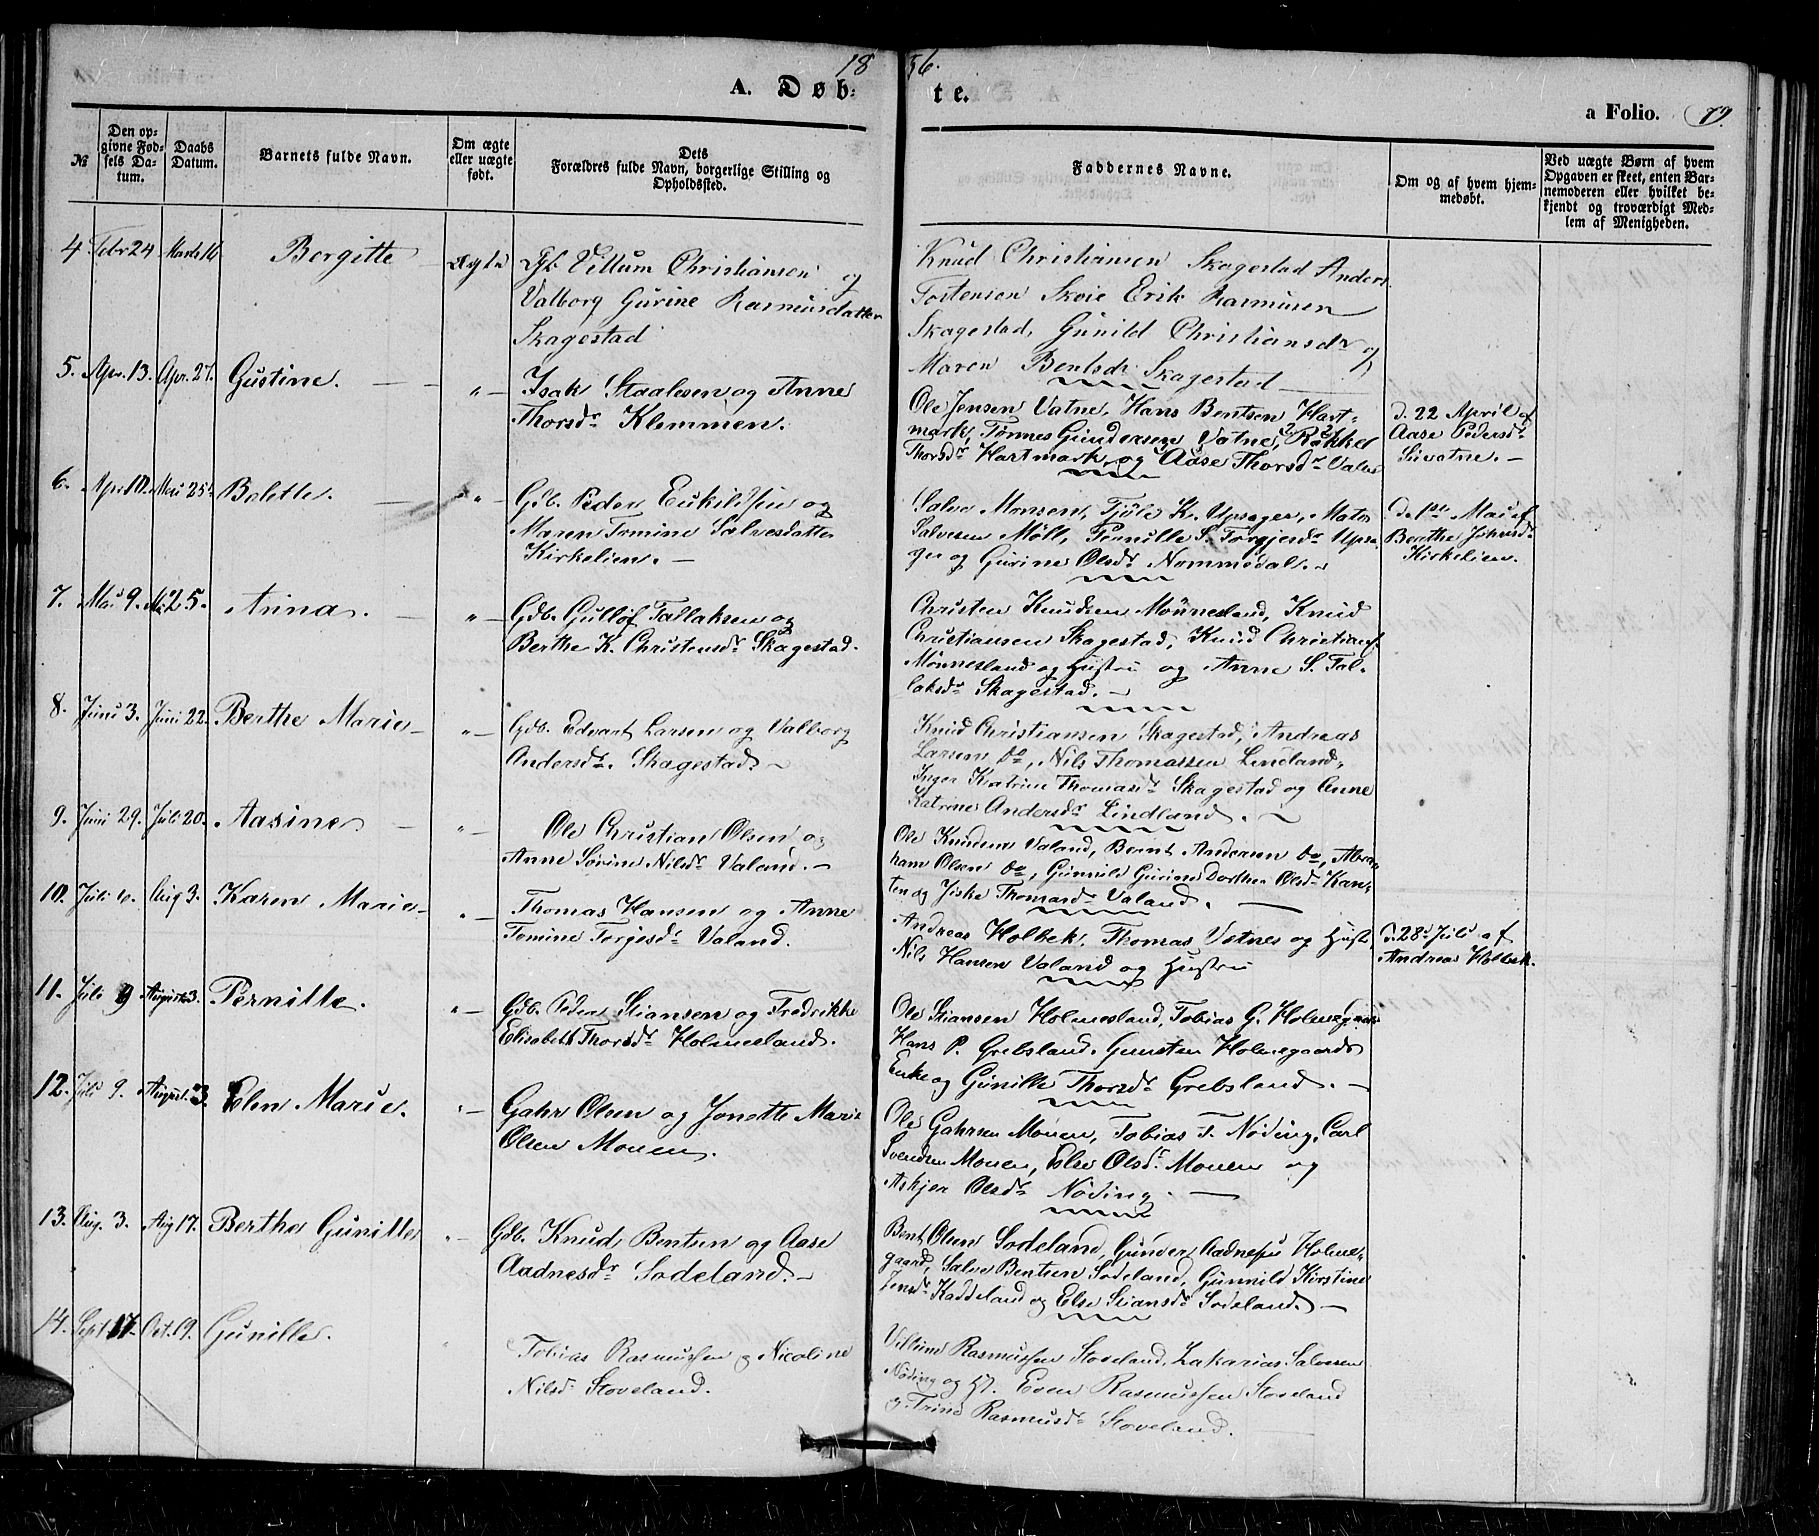 18 56.
A. Døb- te.
a Folio. 79.
№
Den opgivne Fødsels Datum.
Daabs Datum.
Barnets fulde Navn.
Om ægte eller uægte født.
Dets Forældres fulde Navn, borgerlige Stilling og Opholdssted.
Faddernes Navne.
Om og af hvem hjemmedøbt.
Ved uægte Børn af hvem Opgaven er skeet, enten Barnemoderen eller hvilket bekjendt og troværdigt Medlem af Menigheden.
4 Febr 24 Marts 16 Borgitte Ægte
Gb. Villum Christiansen og
Valborg Gurine Rasmusdatter
Skagestad
Knud Christiansen Skagestad Anders
Tostensen Skoie Erik Rasmusen
Skagestad, Gunild Christiansdr og
Maren Bentsdr Skagestad
5. Apr. 13. Apr. 27. Gustine. "
Isak Staalesen og Anne
Thorsdr Klemmen.
Ole Jensen Vatne, Hans Bentsen Hart-
mark, Tønnes Gundersen Vatne, Rakkel
Thorsdr Hartmark, og Aase Thorsdr
d. 22 April af
Aase Pedersdr
6. Apr 10. Mai 25. Bolette. "
Gdb. Peder Eukildsen og
Maren Tomine Salvesdatter
Kirkelien.
Salve Monsen, Tjøle K. Upsager, Mats
Salvesen Möll, Pernille S. Torgjersdr Upsa-
ger og Gurine Olsdr Nommedal.
d. 1ste Mai af
Berthe Johnsdr
Kirkelien.
7. Mai 9. Mai 25. Anna. "
Gdb. Gulløf Tallaksen og
Berthe K. Christensdr Skagestad.
Christen Knudsen Mønnesland, Knud
Christiansen Skagestad, Knud Christians.
Mønnesland og Hustru og Anne S. Tal-
laksdr Skagestad.
8. Juni 3. Juni 22. Berthe Marie "
Gdb. Edvart Larsen og Valborg
Andersdr. Skagestad.
Knud Christiansen Skagestad, Andreas
Larsen do, Nils Thomassen Lindland,
Inger Katrine Thomasdr Skagestad og Anne
Katrine Andersdr Lindland.
9. Juni 29. Juli 20. Aasine "
Ole Christian Olsen og
Anne Sorine Nilsdr Valand.
Ole Knudsen Valand, Bernt Andersen do, Abra-
ham Olsen do, Gunnild Gurine Dorthea Olsdr
og Jiske Thomasdr Valand.
10. Juli 6. Aug 3. Karen Marie "
Thomas Hansen og Anne
Tomine Torgesdr Valand.
Andreas Holbek, Thomas Vatnes og Hust
Nils Hansen Valand og Hustru
d. 28d Juli af
Andreas Holbek.
11. Juli 9 August 3. Pernille. "
Gdb. Peder Stiansen og Fredrikke
Elisabeth Thorsdr Holmesland.
Ole Stiansen Holmesland, Tobias G. Holmegaard
Hans P. Grebsland, Gunsten Holmegaards
Enke og Gunille Thorsdr Grebsland.
12. Juli 9. August 3. Elen Marie. "
Gahr Olsen og Jonette Marie
Olsen Monen.
Ole Gahrsen Monen, Tobias T. Nøding, Carl
Svendsen Monen, Else Olsdr Monen og
Askjer Olsdr Nøding.
13. Aug. 3. Aug 17. Berthe Gunille "
Gdb. Knud Bentsen og Aase
Aadnesdr Sodeland.
Bent Olsen Sodeland, Gunder Aadnesen Holme-
gaard, Salve Bentsen Sodeland, Gunnild Kirstine
Jensdr Kaddeland og Else Stiansdr Sodeland.
14. Sept 17. Oct. 19. Gunille.
Tobias Rasmussen og Nicoline
Nilsd. Stoveland.
Villum Rasmussen Stoveland, Zakarias Salvesen
Nøding og H. Even Rasmussen Stoveland
og Trine Rasmusdr Stoveland.